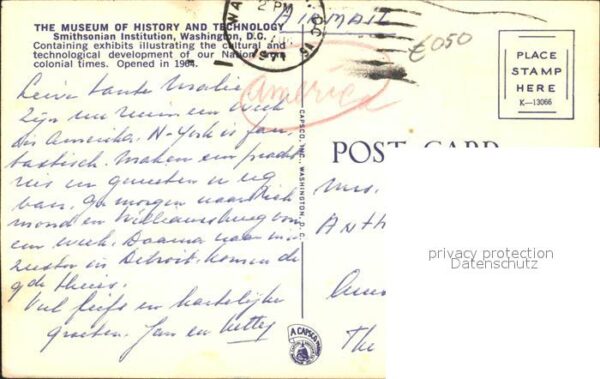 THE MUSEUM OF HISTORY AND TECHNOLOGY
Smithsonian Institution, Washington, D.C.
Containing exhibits illustrating the cultural and
technological development of our Nation from
colonial times. Opened in 1964.
WA
2 PM
1971
D.C.
AIRMAIL
6050
America
PLACE
STAMP
HERE
K-13066
Lieve tante Malie
Zijn nu ruim een week
in Amerika. N-York is fan
tastisch. Maken een pracht
reis en genieten er erg
van. Ga morgen naar Rich
mond en Williamsburg voor
een week. Daarna naar mijn
zuster in Detroit. Komen de
9de thuis.
Veel liefs en hartelijke
groeten. Jan en Netty
CAPSCO, INC., WASHINGTON, D.C.
A CAPSCO
POST CARD
Mrs.
Anth
The
privacy protection
Datenschutz